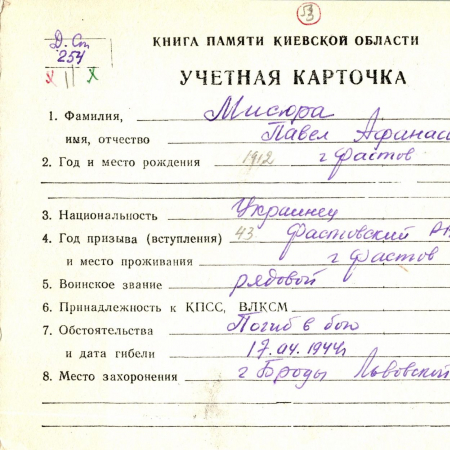 53
Д. Сп
254
X II X
КНИГА ПАМЯТИ КИЕВСКОЙ ОБЛАСТИ
УЧЕТНАЯ КАРТОЧКА
1. Фамилия, Мисюра
имя, отчество Павел Афанас
2. Год и место рождения 1912 г Фастов
3. Национальность Украинец
4. Год призыва (вступления) 43 Фастовский
и место проживания г Фастов
5. Воинское звание рядовой
6. Принадлежность к КПСС, ВЛКСМ
7. Обстоятельства Погиб в бою
и дата гибели 17.04.1944г
8. Место захоронения г Броды Львовской